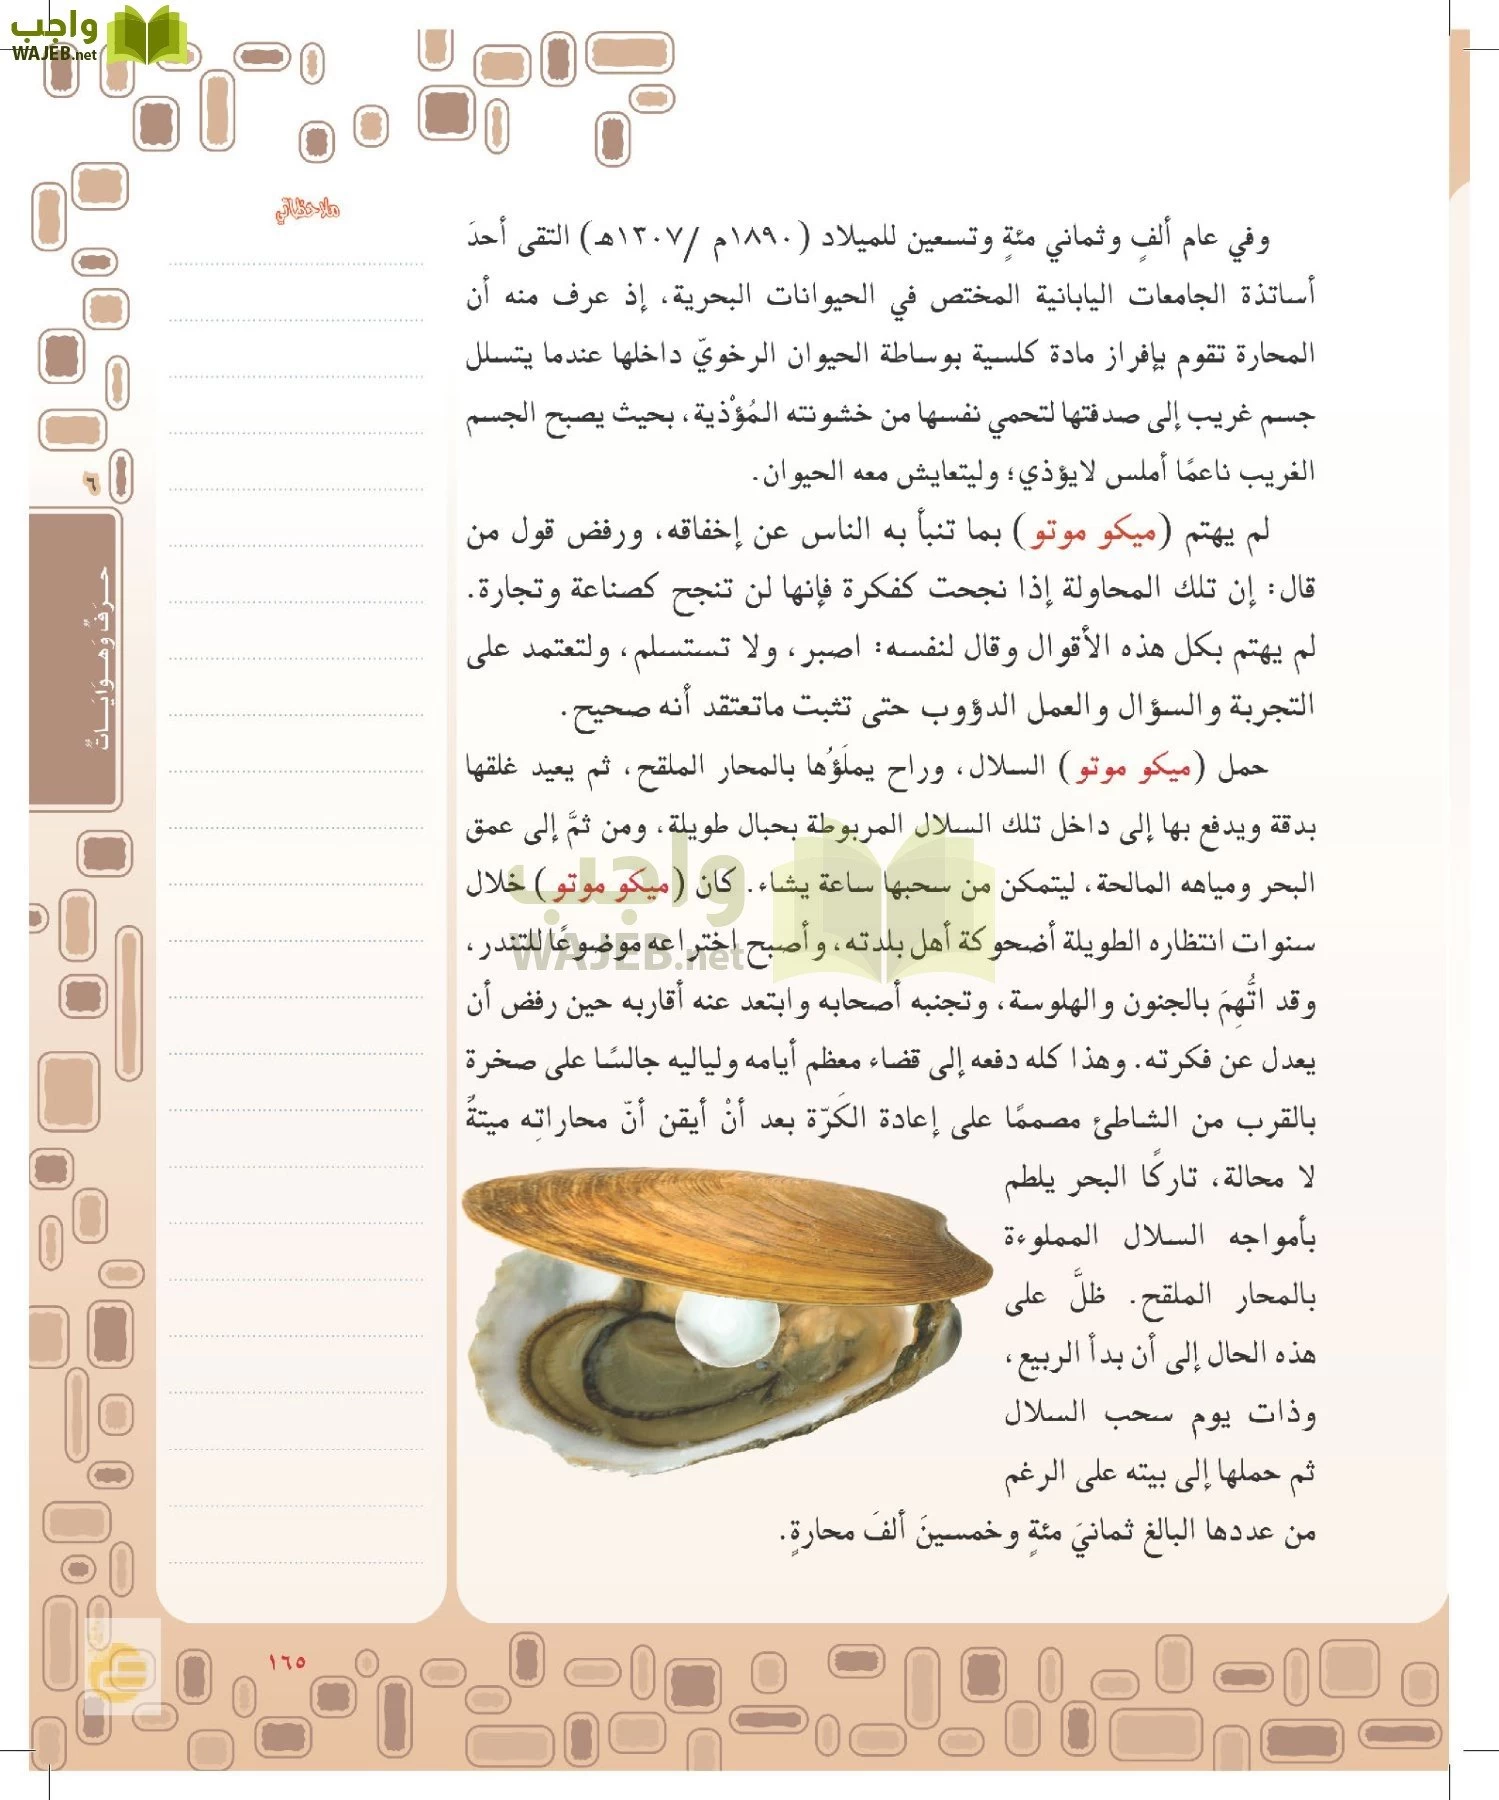 واجب
WAJEB.net
ملاحظاتي
وفي عام ألفٍ وثماني مئةٍ وتسعين للميلاد (١٨٩٠م /١٣٠٧هـ) التقى أحدَ
أساتذة الجامعات اليابانية المختص في الحيوانات البحرية، إذ عرف منه أن
المحارة تقوم بإفراز مادة كلسية بوساطة الحيوان الرخويّ داخلها عندما يتسلل
جسم غريب إلى صدفتها لتحمي نفسها من خشونته المُؤْذية، بحيث يصبح الجسم
الغريب ناعمًا أملس لايؤذي؛ وليتعايش معه الحيوان.
لم يهتم (ميكو موتو) بما تنبأ به الناس عن إخفاقه، ورفض قول من
قال: إن تلك المحاولة إذا نجحت كفكرة فإنها لن تنجح كصناعة وتجارة.
لم يهتم بكل هذه الأقوال وقال لنفسه: اصبر، ولا تستسلم، ولتعتمد على
التجربة والسؤال والعمل الدؤوب حتى تثبت ماتعتقد أنه صحيح.
حمل (ميكو موتو) السلال، وراح يملَؤُها بالمحار الملقح، ثم يعيد غلقها
بدقة ويدفع بها إلى داخل تلك السلال المربوطة بحبال طويلة، ومن ثمَّ إلى عمق
البحر ومياهه المالحة، ليتمكن من سحبها ساعة يشاء. كان (ميكو موتو) خلال
سنوات انتظاره الطويلة أضحوكة أهل بلدته، وأصبح اختراعه موضوعًا للتندر،
وقد اتُّهِمَ بالجنون والهلوسة، وتجنبه أصحابه وابتعد عنه أقاربه حين رفض أن
يعدل عن فكرته. وهذا كله دفعه إلى قضاء معظم أيامه ولياليه جالسًا على صخرة
بالقرب من الشاطئ مصممًا على إعادة الكَرّة بعد أنْ أيقن أنّ محاراتِه ميتةٌ
لا محالة، تاركًا البحر يلطم
بأمواجه السلال المملوءة
بالمحار الملقح. ظلَّ على
هذه الحال إلى أن بدأ الربيع،
وذات يوم سحب السلال
ثم حملها إلى بيته على الرغم
من عددها البالغ ثمانيَ مئةٍ وخمسينَ ألفَ محارةٍ.
واجب
WAJEB.net
٦
حِرَفٌ وَهِوَايَاتٌ
١٦٥